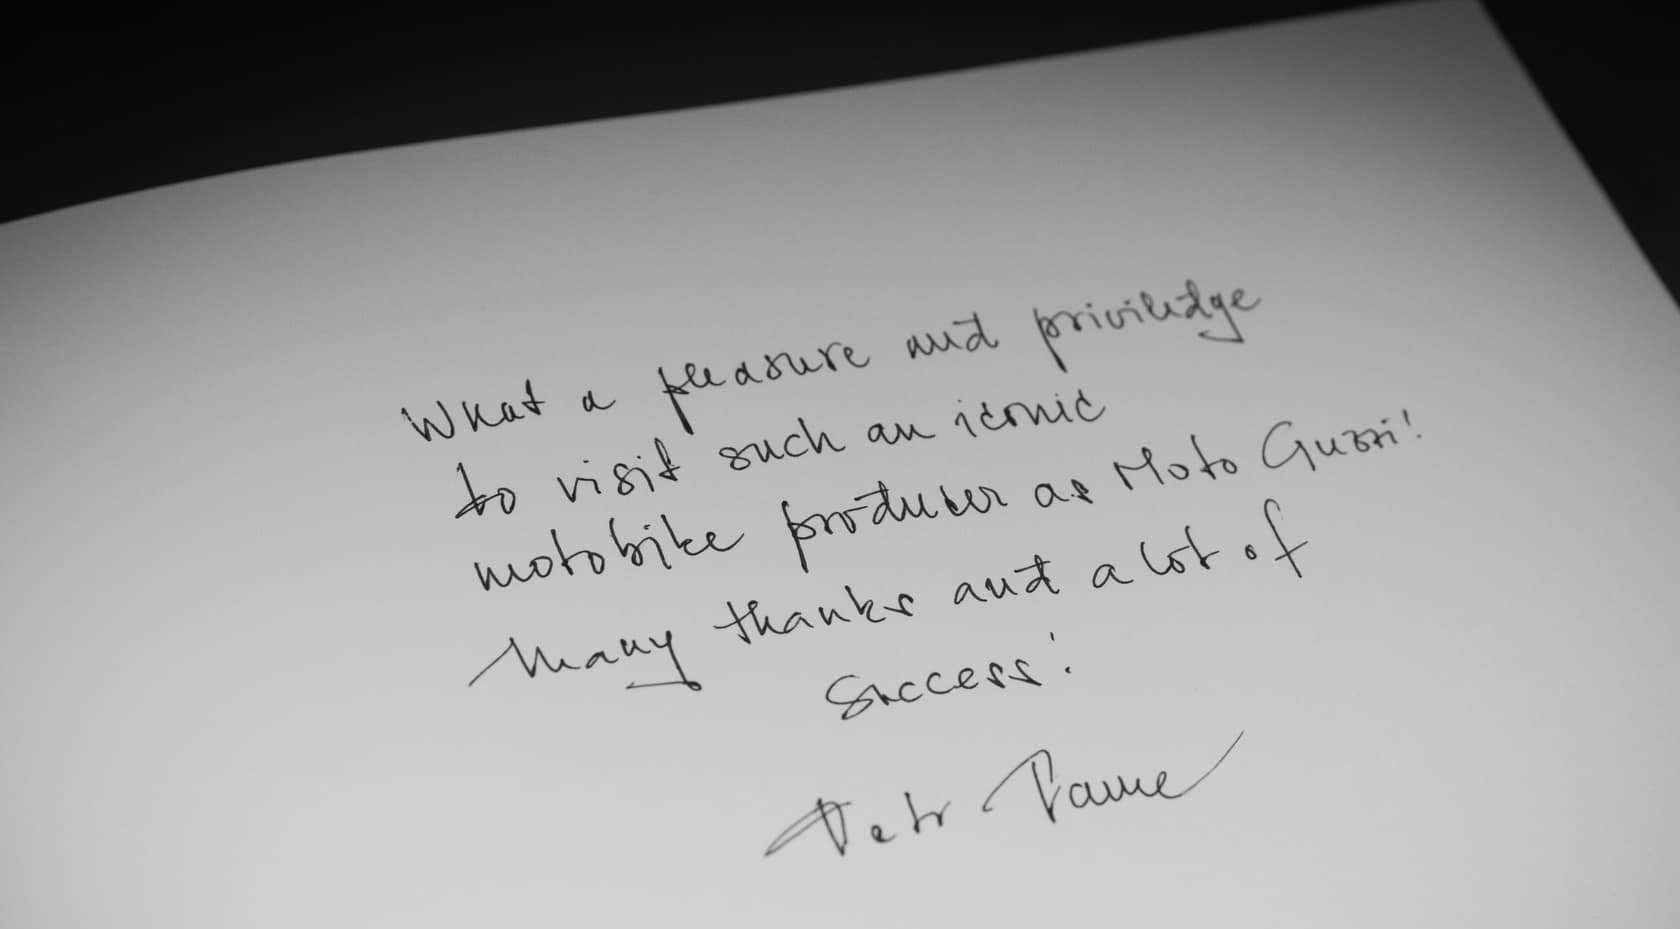 What a pleasure and priviledge
to visit such an iconic
motobike producer as Moto Guzzi!
Many thanks and a lot of
success!
Petr